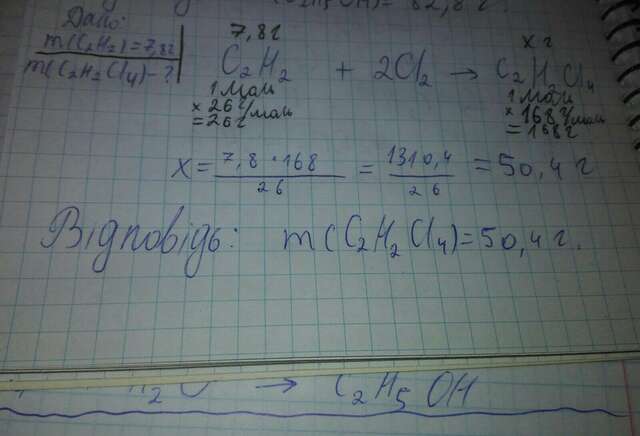 H₅OH) = 82,8 г.
Дано:
m(C₂H₂)=7,8г
m(C₂H₂Cl₄)-?
7,8г x г
C₂H₂ + 2Cl₂ → C₂H₂Cl₄
1 моль 1 моль
× 26 г/моль × 168 г/моль
= 26 г = 168 г
x = 7,8 · 168 / 26 = 1310,4 / 26 = 50,4 г
Відповідь: m(C₂H₂Cl₄)=50,4 г.
H₂O → C₂H₅OH